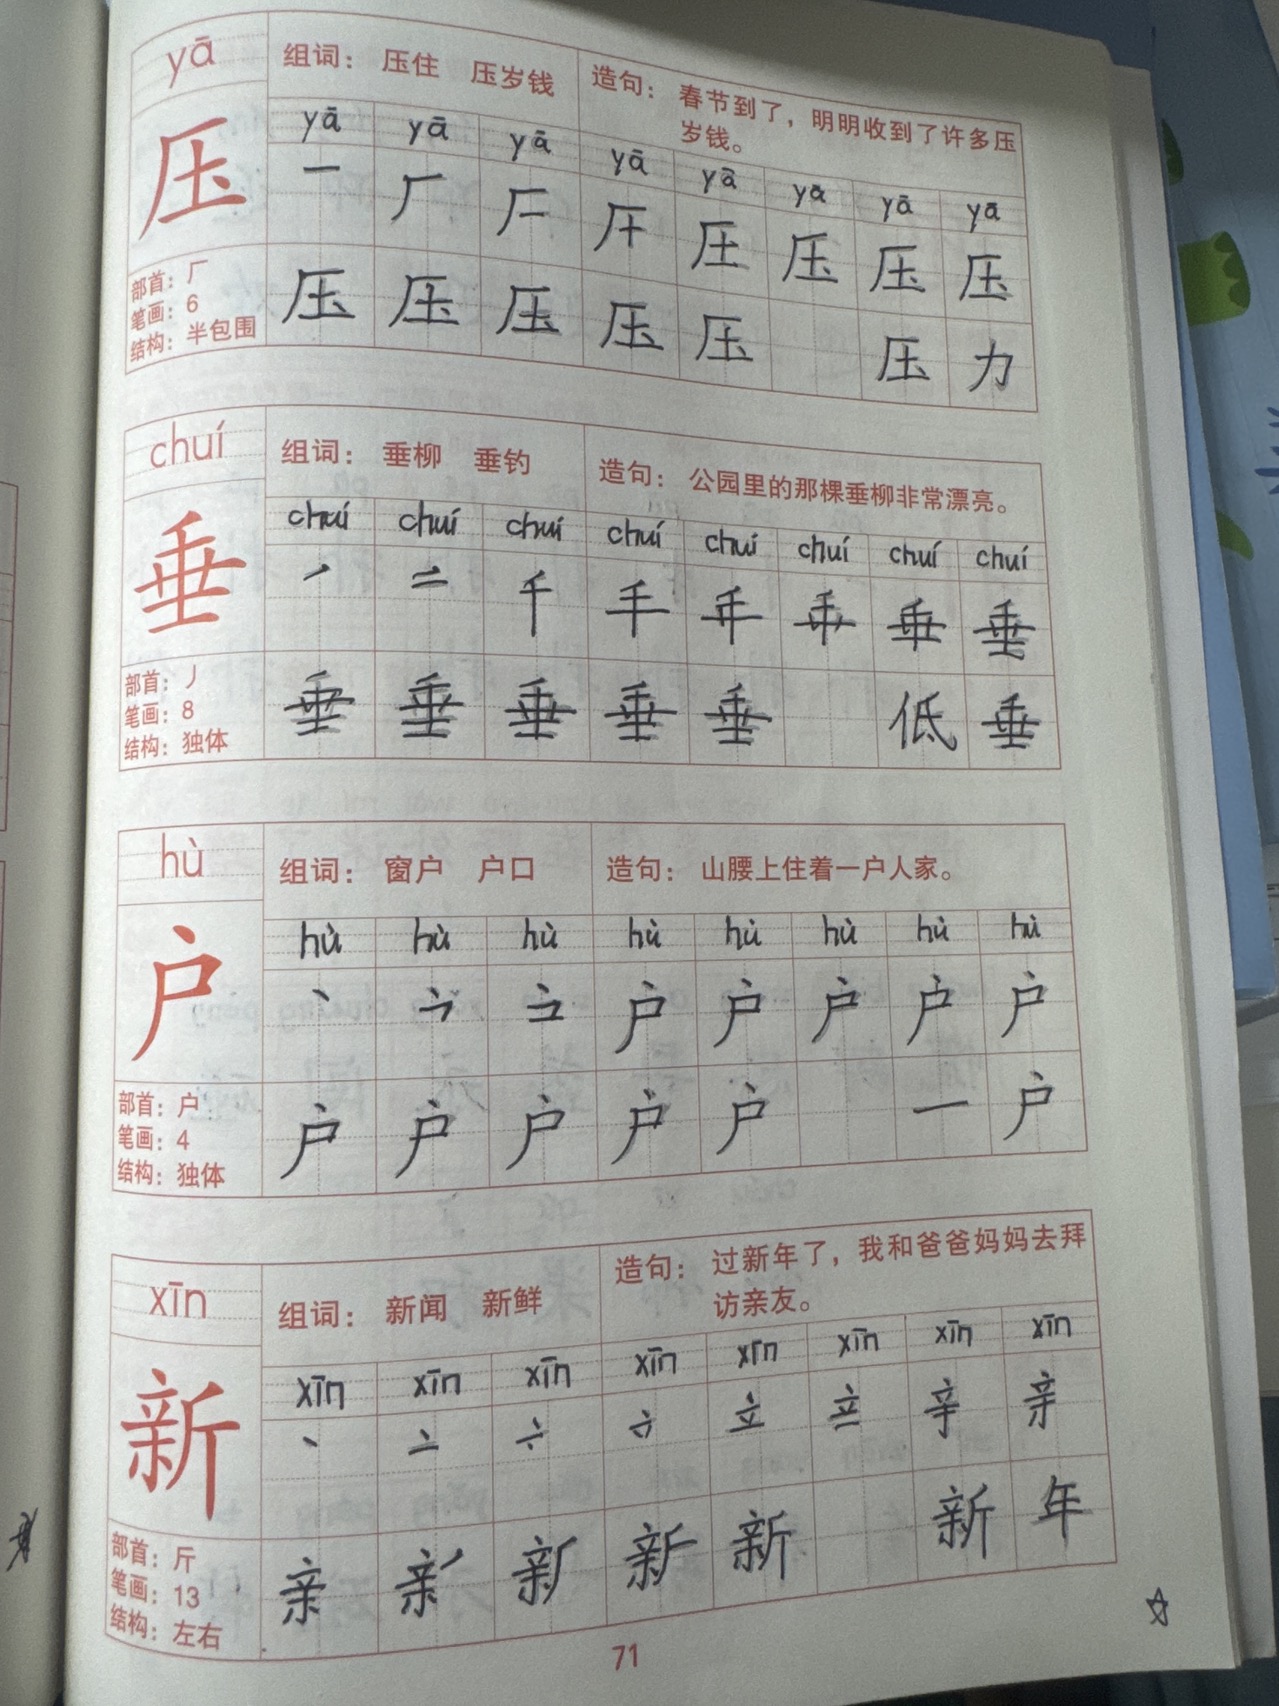 yā
组词： 压住 压岁钱
造句： 春节到了，明明收到了许多压
岁钱。
yā yā yā yā yā yā yā yā
压
一 厂 压 压 压 压
部首： 厂
笔画： 6
结构： 半包围
压 压 压 压 压 压 力
chuí
组词： 垂柳 垂钓
造句： 公园里的那棵垂柳非常漂亮。
chuí chuí chuí chuí chuí chuí chuí chuí
垂
丿 二 千 垂
部首： 丿
笔画： 8
结构： 独体
垂 垂 垂 垂 垂 低 垂
hù
组词： 窗户 户口
造句： 山腰上住着一户人家。
hù hù hù hù hù hù hù hù
户
丶 户 户 户 户 户
部首： 户
笔画： 4
结构： 独体
户 户 户 户 户 一 户
xīn
组词： 新闻 新鲜
造句： 过新年了，我和爸爸妈妈去拜
访亲友。
xīn xīn xīn xīn xīn xīn xīn xīn
新
丶 亠 立 辛 亲
部首： 斤
笔画： 13
结构： 左右
亲 新 新 年
71